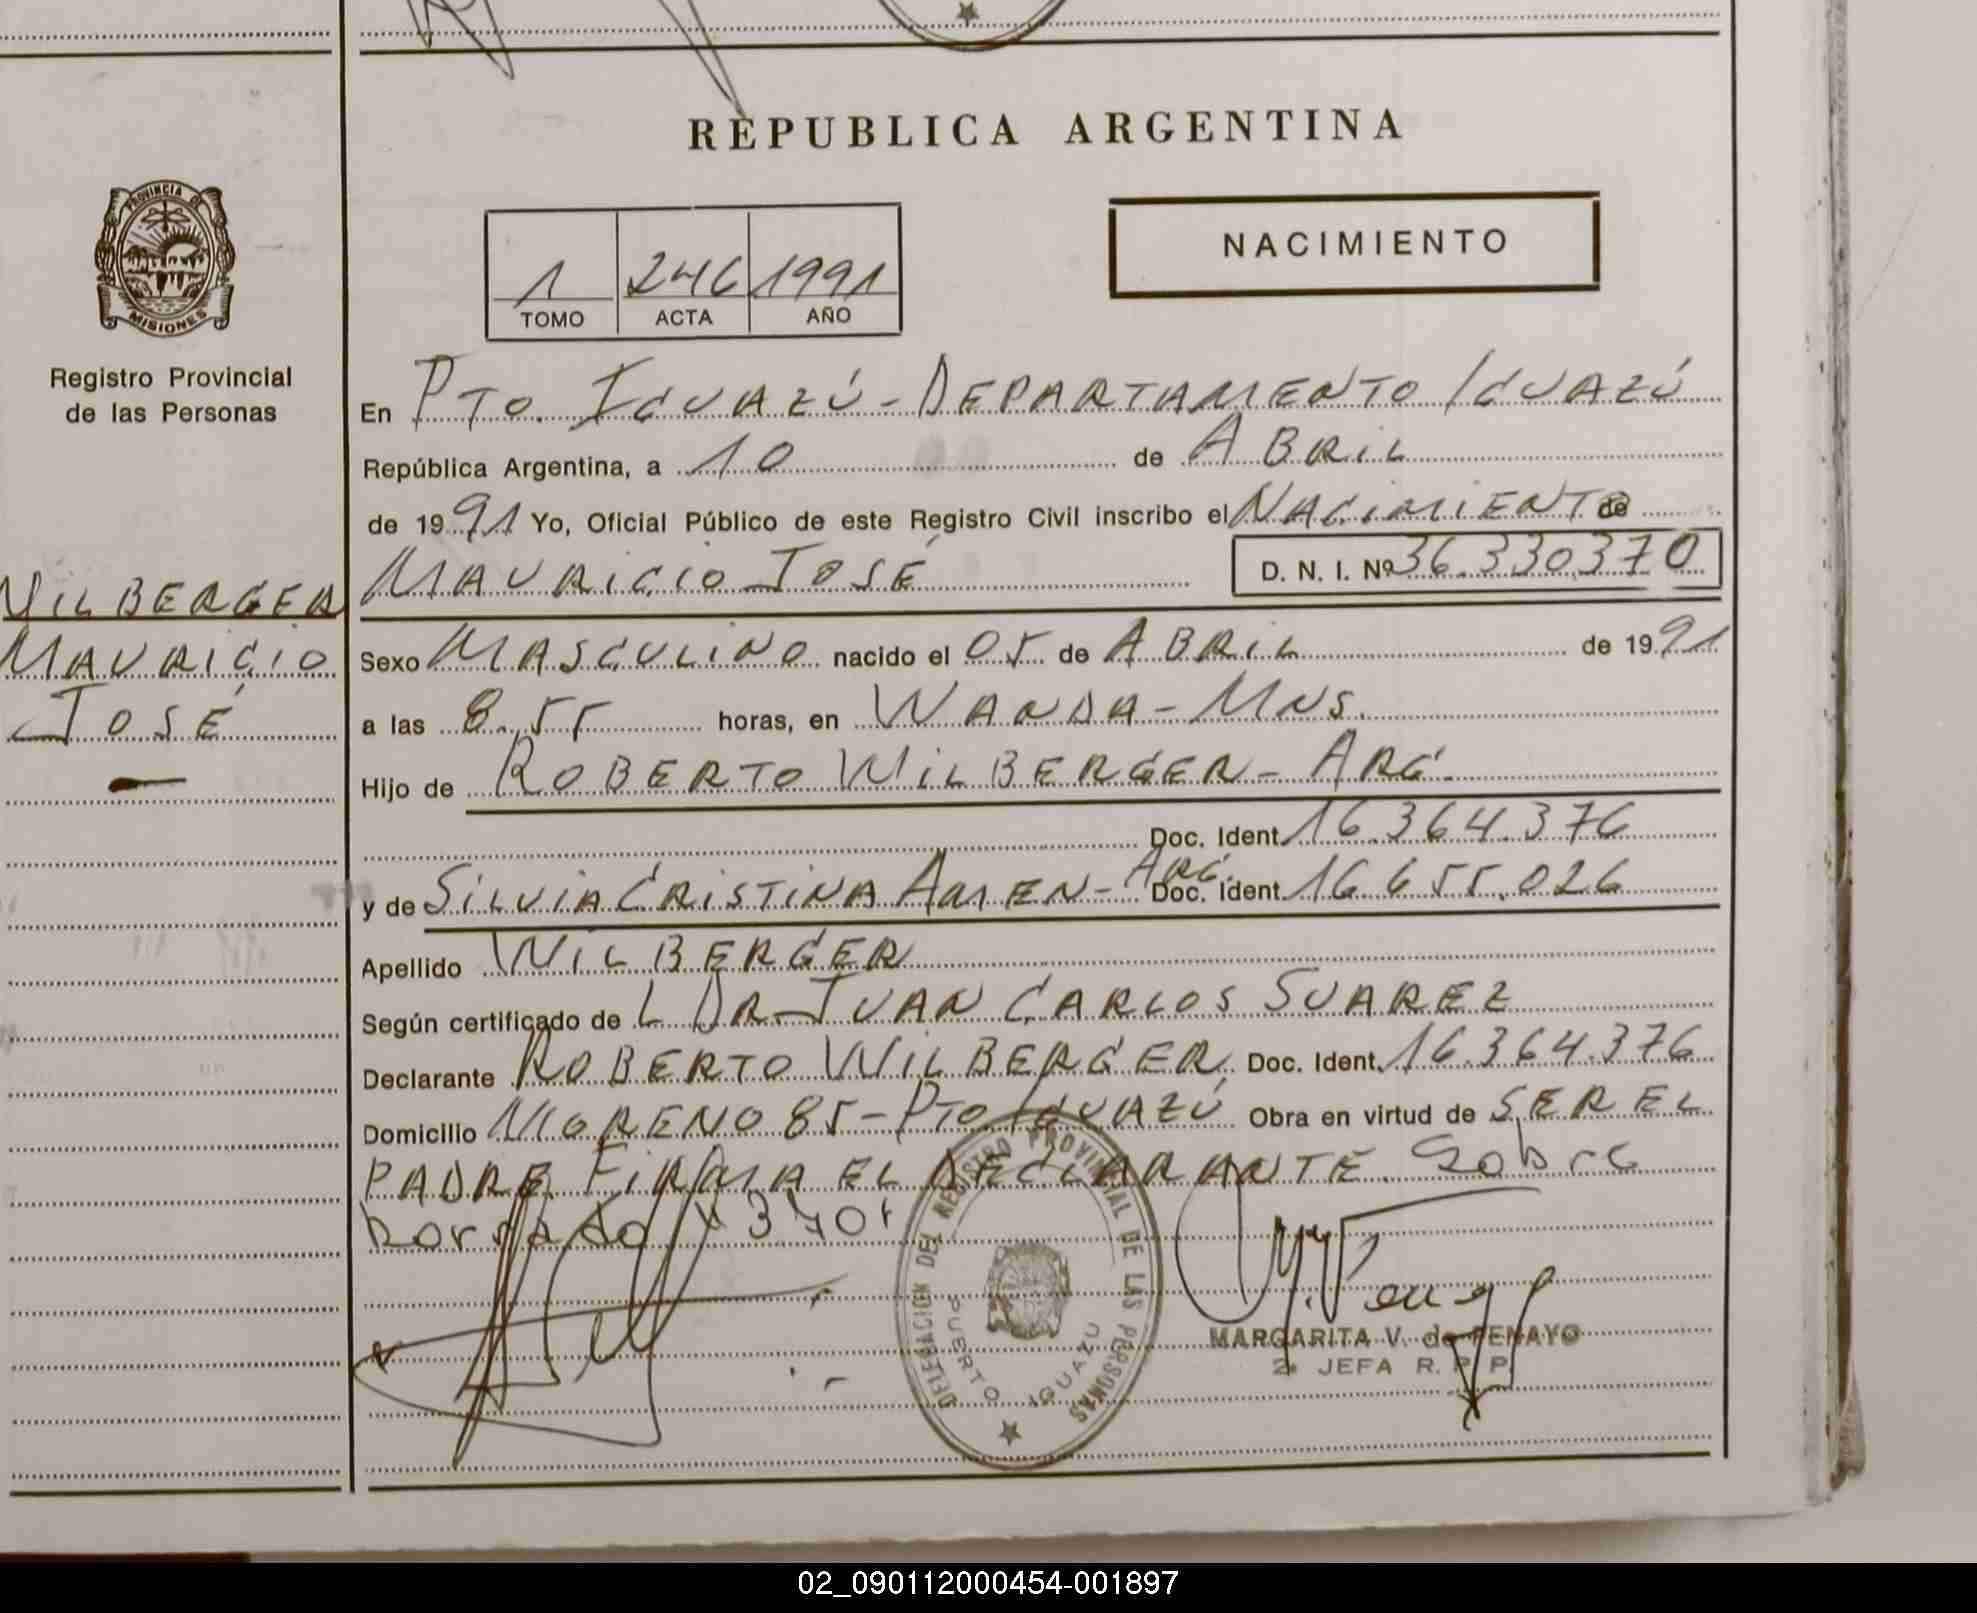 REPUBLICA ARGENTINA
NACIMIENTO
1 246 1991
TOMO ACTA AÑO
PROVINCIA DE
MISIONES
Registro Provincial
de las Personas
En PTO. IGUAZÚ - DEPARTAMENTO IGUAZÚ
República Argentina, a 10 de ABRIL
de 1991 Yo, Oficial Público de este Registro Civil inscribo el NACIMIENTO de
MAURICIO JOSÉ D. N. I. Nº 36.330.370
WILBERGER
MAURICIO
JOSÉ
Sexo MASCULINO nacido el 05 de ABRIL de 1991
a las 8.55 horas, en WANDA - MNS.
Hijo de ROBERTO WILBERGER - ARG.
Doc. Ident. 16.364.376
y de SILVIA CRISTINA AMEN - ARG. Doc. Ident. 16.655.026
Apellido WILBERGER
Según certificado de L DR. JUAN CARLOS SUAREZ
Declarante ROBERTO WILBERGER. Doc. Ident. 16.364.376
Domicilio MORENO 85 - PTO IGUAZÚ Obra en virtud de SER EL
PADRE. FIRMA EL DECLARANTE. Sobre
borrado "370"
DELEGACION DEL REGISTRO PROVINCIAL DE LAS PERSONAS
PUERTO IGUAZU
MARGARITA V. de PENAYO
2ª JEFA R. P. P.
02_090112000454-001897